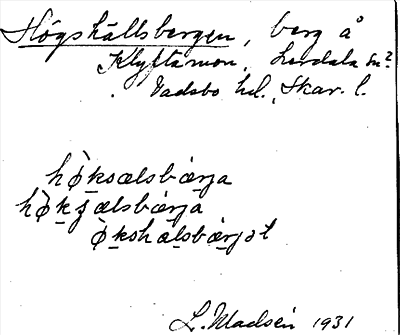 Högshällsbergen, berg å
Klyftamon, Lerdala sn?
Vadsbo hd., Skar. l.
hø̀ksælsbærja
hø̀kʂælsbærja
ø̀kshælsbærjət
L. Madsén 1931